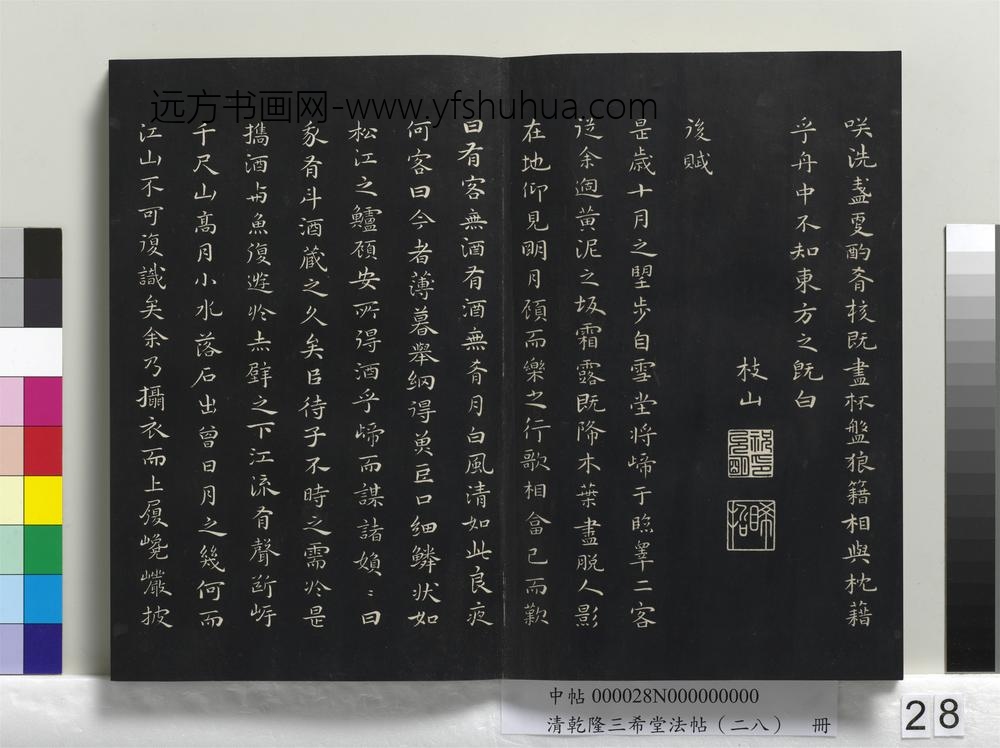 远方书画网-www.yfshuhua.com
咲洗盞更酌肴核既盡杯盤狼籍相與枕藉
乎舟中不知東方之既白
枝山
後賦
是歳十月之朢步自雪堂将歸于臨皋二客
從余過黃泥之坂霜露既降木葉盡脫人影
在地仰見明月顧而樂之行歌相畣已而歎
曰有客無酒有酒無肴月白風清如此良夜
何客曰今者薄暮舉網得魚巨口細鱗狀如
松江之鱸顧安所得酒乎歸而謀諸婦〻曰
我有斗酒藏之久矣以待子不時之需於是
攜酒與魚復遊於赤壁之下江流有聲斷岸
千尺山高月小水落石出曾日月之幾何而
江山不可復識矣余乃攝衣而上履巉巖披
中帖 000028N000000000
清乾隆三希堂法帖（二八） 冊
28